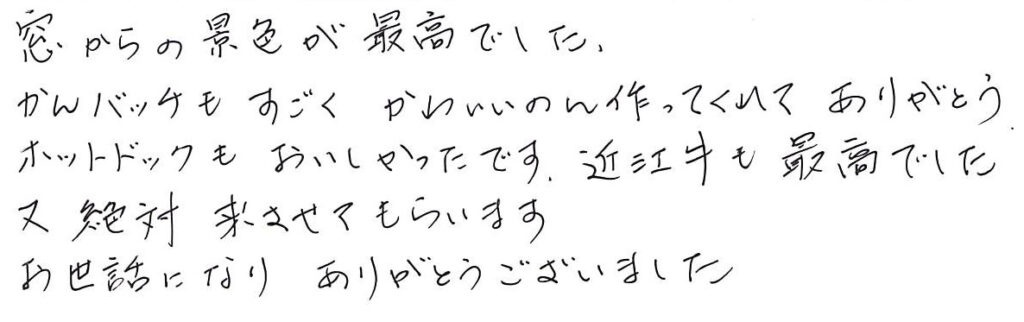 窓からの景色が最高でした。
かんバッヂも すごく かわいいのん作ってくれて ありがとう.
ホットドックも おいしかったです. 近江牛も 最高でした
又 絶対 来させてもらいます
お世話になり ありがとうございました